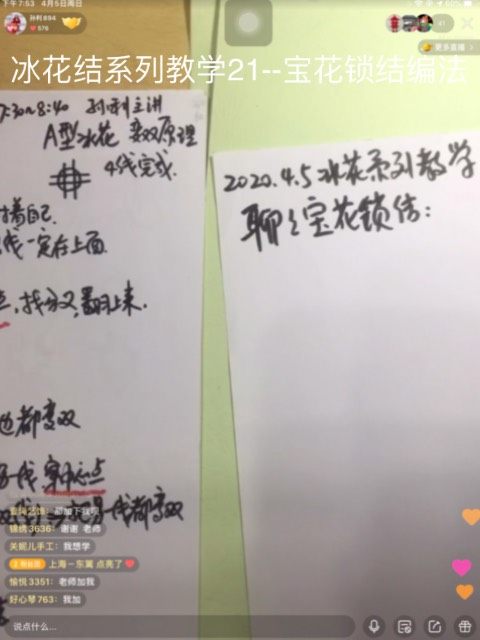 下午7:53 4月5日周日
60%
孙利894
576
41
更多直播 >
冰花结系列教学21--宝花锁结编法
7:30~8:40 孙利主讲
A型冰花 变双原理
4线完成.
着自己.
线一定在上面.
找分叉,翻上来.
都变双
线,穿中心点
线都变双
2020.4.5 冰花系列教学
聊聊宝花锁结:
那加下我呗
锦绣3636: 谢谢 老师
关妮儿手工: 我想学
上海一东篱 点亮了
愉悦3351: 老师加我
好心琴763: 我加
说点什么...